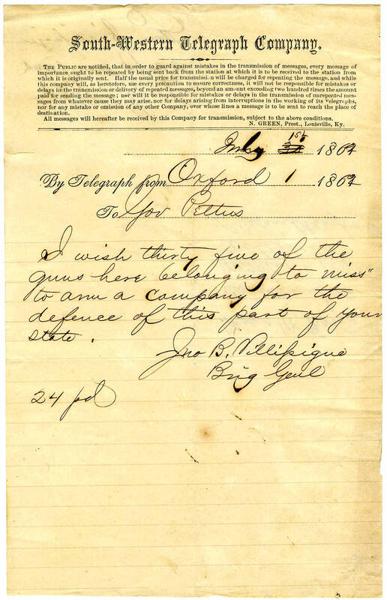 South-Western Telegraph Company,
THE PUBLIC are notified, that in order to guard against mistakes in the transmission of messages, every message of
importance ought to be repeated by being sent back from the station at which it is to be received to the station from
which it is originally sent. Half the usual price for transmission will be charged for repeating the message, and while
this company will, as heretofore, use every precaution to ensure correctness, it will not be responsible for mistakes or
delays in the transmission or delivery of repeated messages, beyond an amount exceeding two hundred times the amount
paid for sending the message; nor will it be responsible for mistakes or delays in the transmission of unrepeated mes-
sages from whatever cause they may arise, nor for delays arising from interruptions in the working of its Telegraphs,
nor for any mistake or omission of any other Company, over whose lines a message is to be sent to reach the place of
destination.
All messages will hereafter be received by this Company for transmission, subject to the above conditions.
N. GREEN, Prest., Louisville, Ky.
July 1st 1862
By Telegraph from Oxford 1 1862
To Gov Pettus
I wish thirty five of the
guns here belonging to "miss"
to arm a company for the
defence of this part of your
state.
Jno B. Villipigue
Brig Genl
24 pd